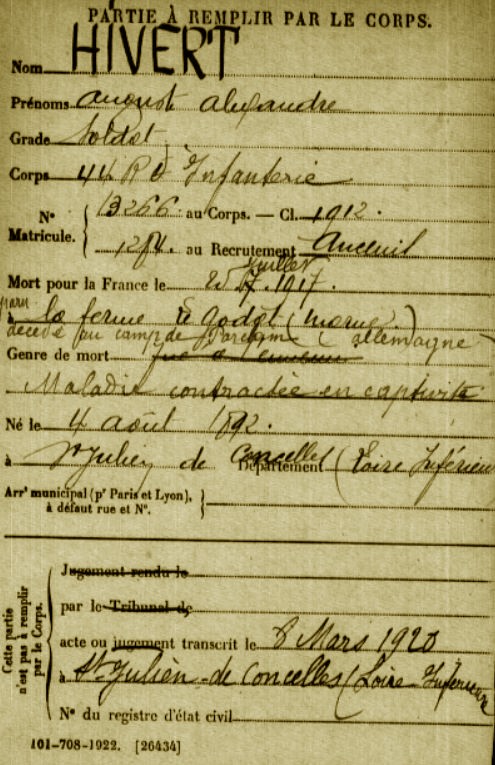 PARTIE À REMPLIR PAR LE CORPS.
Nom HIVERT
Prénoms August Alexandre
Grade Soldat
Corps 44 R d'Infanterie
N° Matricule. 13266 au Corps. — Cl. 1912.
1284. au Recrutement Ancenis
Mort pour la France le Juillet 1917.
à la ferme de Godot (Marne.)
décédé au camp de (Allemagne
Genre de mort
Maladie contractée en captivité
Né le 4 août 1892.
à St Julien de Concelles Département (Loire Inférieur
Arrt municipal (pr Paris et Lyon), à défaut rue et N°.
Cette partie n'est pas à remplir par le Corps.
Jugement rendu le
par le Tribunal de
acte ou jugement transcrit le 8 Mars 1920
à St Julien-de Concelles (Loire Inférieure
N° du registre d'état civil
101-708-1922. [26434]